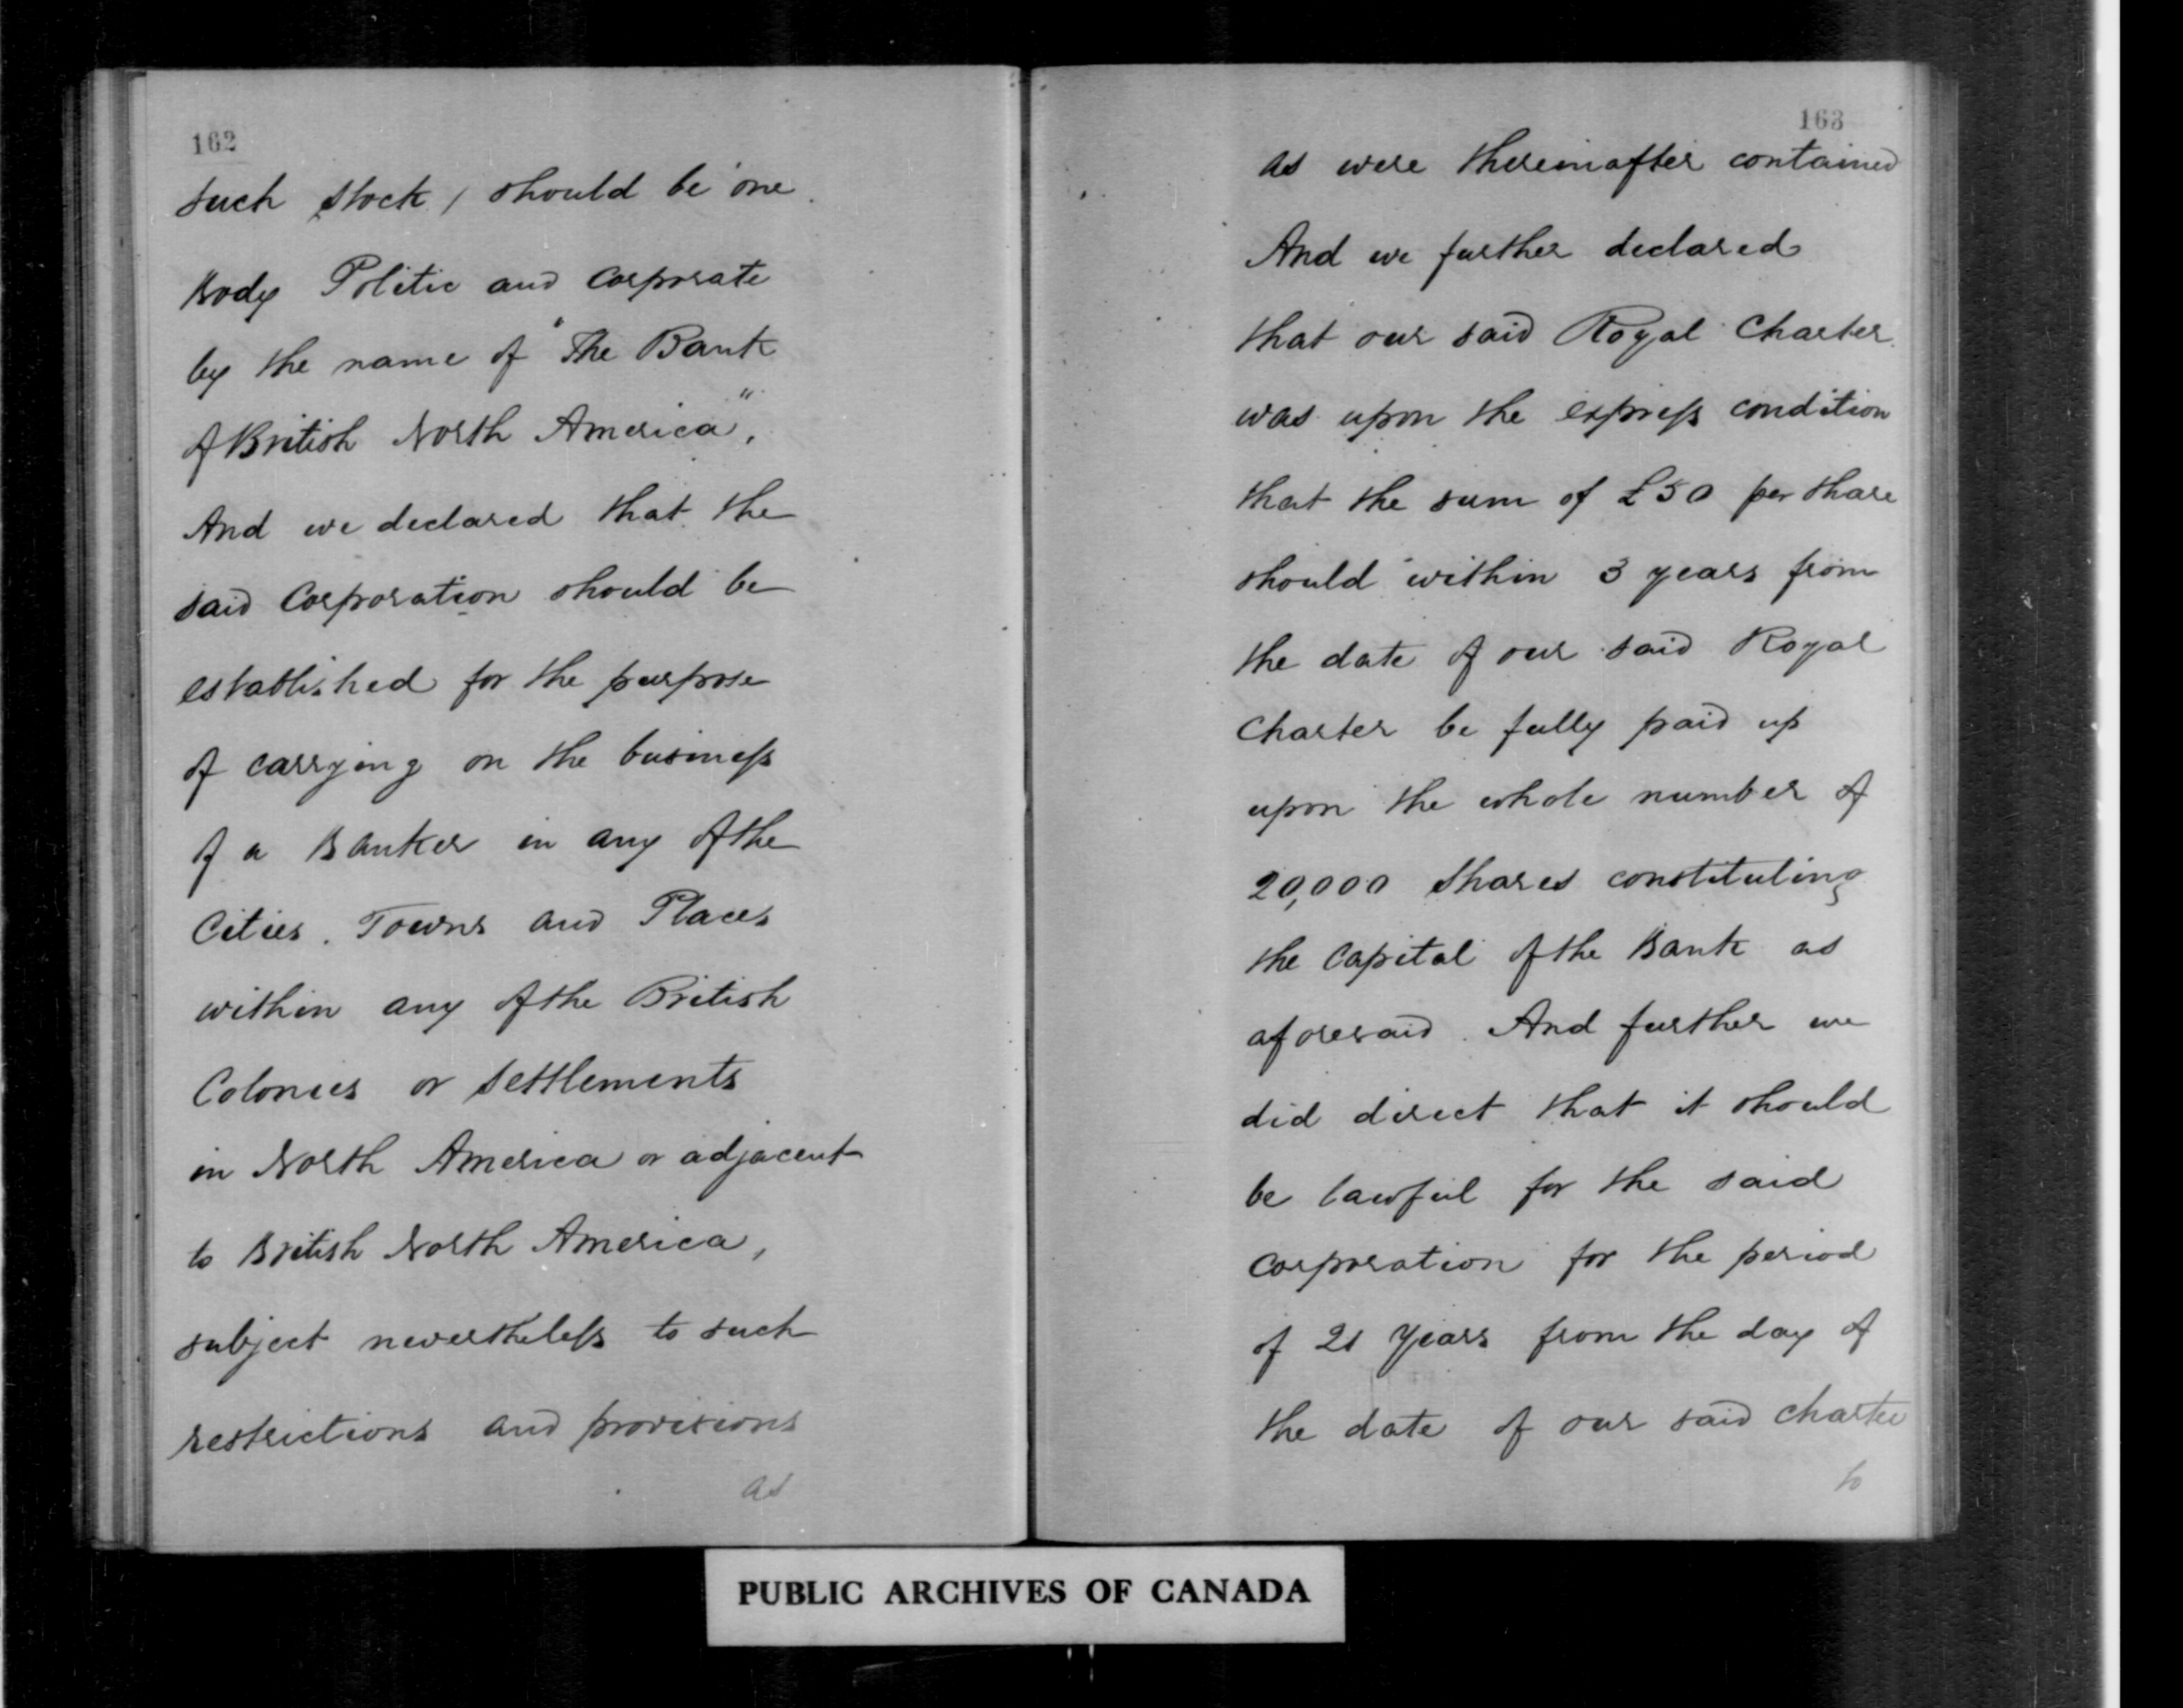 162
such stock / should be one
Body Politic and Corporate
by the name of "The Bank
of British North America",
And we declared that the
said Corporation should be
established for the purpose
of carrying on the business
of a Banker in any of the
Cities. Towns and Places
within any of the British
Colonies or Settlements
in North America or adjacent
to British North America,
subject nevertheless to such
restrictions and provisions
as
163
as were thereinafter contained
And we further declared
that our said Royal Charter
was upon the express condition
that the sum of £50 per share
should within 3 years from
the date of our said Royal
Charter be fully paid up
upon the whole number of
20,000 Shares constituting
the Capital of the Bank as
aforesaid. And further we
did direct that it should
be lawful for the said
Corporation for the period
of 21 Years from the day of
the date of our said Charter
to
PUBLIC ARCHIVES OF CANADA